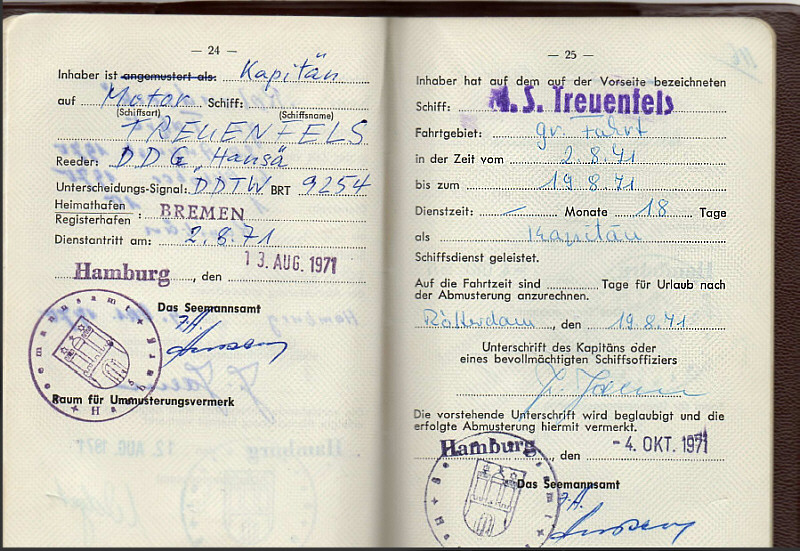 — 24 —
Inhaber ist angemustert als: Kapitän
auf Motor Schiff:
(Schiffsart) (Schiffsname)
TREUENFELS
Reeder: DDG „Hansa
Unterscheidungs-Signal: DDTW BRT 9254
Heimathafen
Registerhafen : BREMEN
Dienstantritt am: 2.8.71
Hamburg, den 13. AUG. 1971
Das Seemannsamt
J.A.
Seemannsamt Hamburg
Raum für Ummusterungsvermerk
— 25 —
Inhaber hat auf dem auf der Vorseite bezeichneten
Schiff: M.S. Treuenfels
Fahrtgebiet: gr. Fahrt
in der Zeit vom 2.8.71
bis zum 19.8.71
Dienstzeit: — Monate 18 Tage
als Kapitän
Schiffsdienst geleistet.
Auf die Fahrtzeit sind Tage für Urlaub nach
der Abmusterung anzurechnen.
Rotterdam, den 19.8.71
Unterschrift des Kapitäns oder
eines bevollmächtigten Schiffsoffiziers
Die vorstehende Unterschrift wird beglaubigt und die
erfolgte Abmusterung hiermit vermerkt.
Hamburg, den -4. OKT. 1971
Das Seemannsamt
J.A.